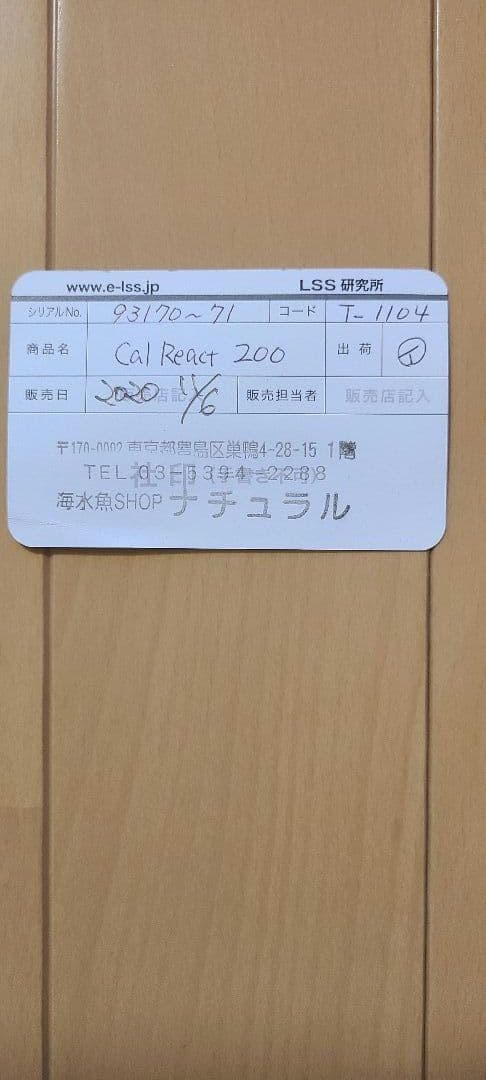 www.e-lss.jp LSS 研究所
シリアルNo. 93170~71 コード T-1104
商品名 Cal React 200 出荷 イ
販売日 2020 11/6 販売店記入 販売担当者 販売店記入
〒170-0002 東京都豊島区巣鴨4-28-15 1階
TEL 03-5394-2288
社印(手書き不可)
海水魚SHOP ナチュラル